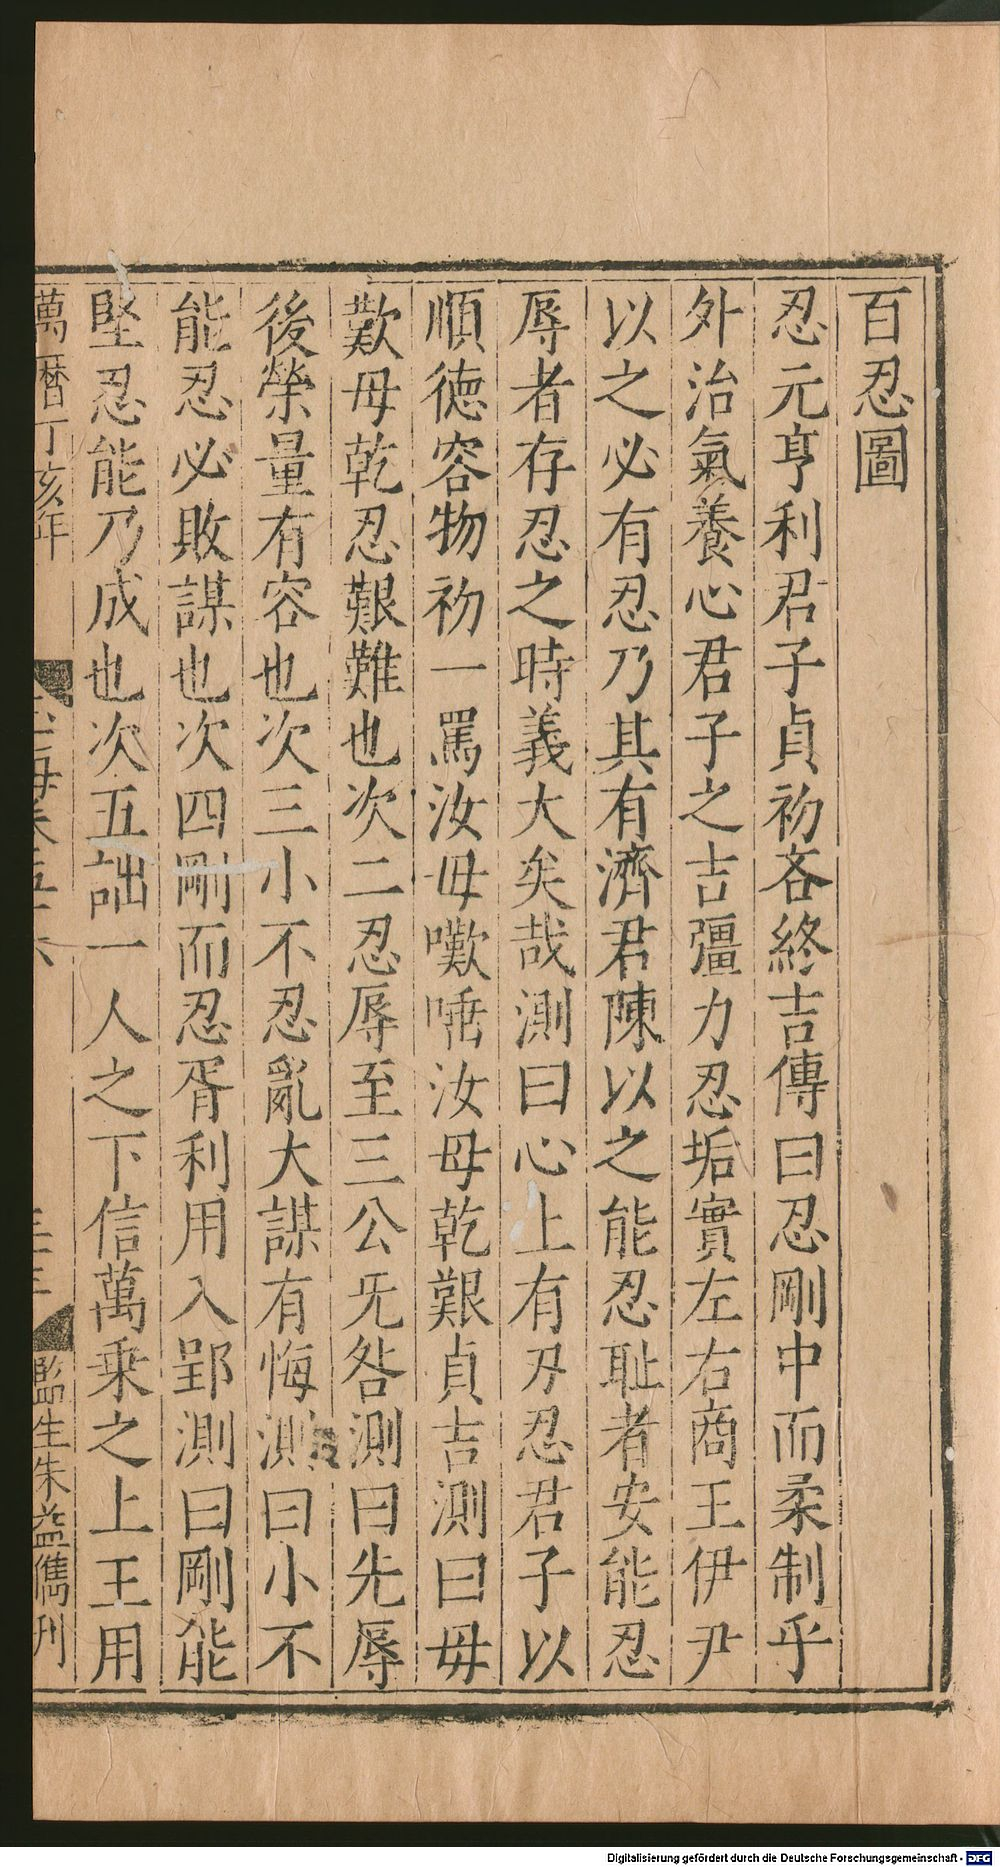 百忍圖
忍元亨利君子貞初吝終吉傳曰忍剛中而柔制乎
外治氣養心君子之吉彊力忍垢實左右商王伊尹
以之必有忍乃其有濟君陳以之能忍耻者安能忍
辱者存忍之時義大矣哉測曰心上有刃忍君子以
順德容物初一罵汝毋嘋唾汝毋乾艱貞吉測曰毋
歎毋乾忍艱難也次二忍辱至三公旡咎測曰先辱
後榮量有容也次三小不忍亂大謀有悔測曰小不
能忍必敗謀也次四剛而忍胥利用入郢測曰剛能
堅忍能乃成也次五詘一人之下信萬乗之上王用
萬曆丁亥年
監生朱益儁刊
Digitalisierung gefördert durch die Deutsche Forschungsgemeinschaft - DFG